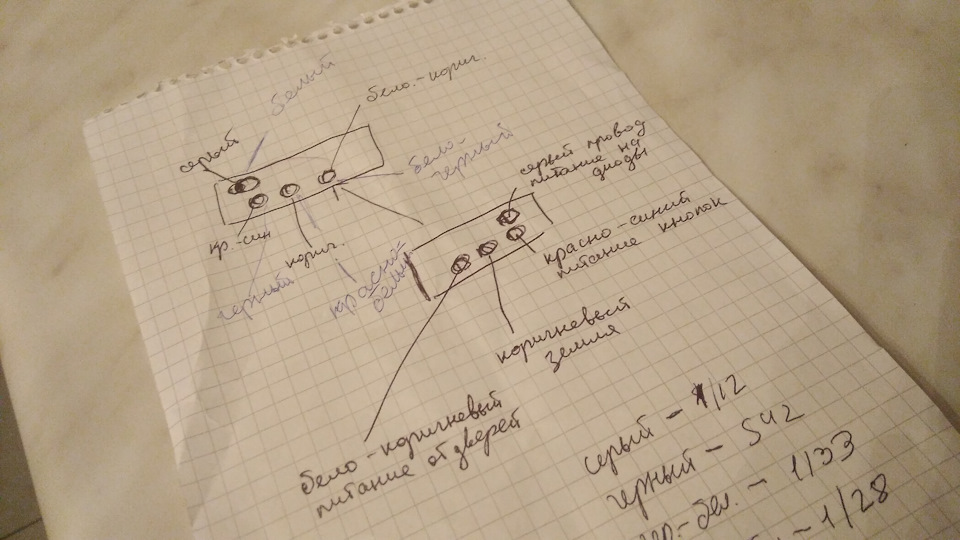 белый
бело-корич.
серый
бело-
черный
кр.-син
корич.
черный
красно-
белый
серый провод
питание на
диоды
красно-синий
питание кнопок
коричневый
земля
бело-коричневый
питание от дверей
серый - 1/12
черный - 542
бел. - 1/33
- 1/28